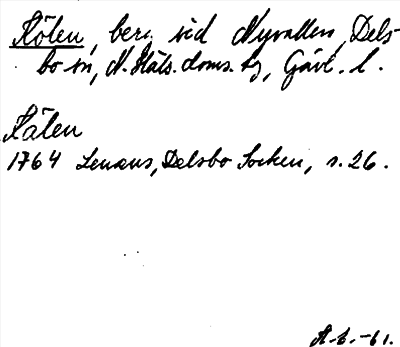 Kölen, berg vid Nyvallen, Dels-
bo sn, N. Häls. doms. tg, Gävl. l.
Kålen
1764 Lenæus, Delsbo Socken, s. 26.
A.E.-61.